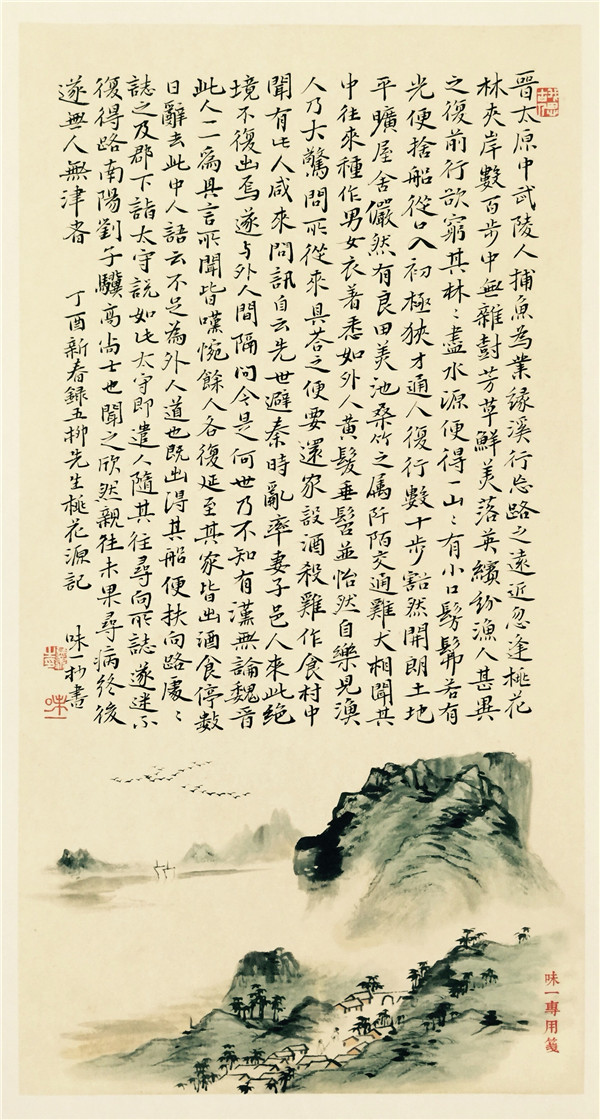 晉太原中武陵人捕魚為業緣溪行忘路之遠近忽逢桃花
林夾岸數百步中無雜樹芳草鮮美落英繽紛漁人甚異
之復前行欲窮其林〻盡水源便得一山〻有小口髣髴若有
光便捨船從口入初極狹才通人復行數十步豁然開朗土地
平曠屋舍儼然有良田美池桑竹之属阡陌交通雞犬相聞其
中往來種作男女衣著悉如外人黃髮垂髫並怡然自樂見漁
人乃大驚問所從來具荅之便要還家設酒殺雞作食村中
聞有此人咸來問訊自云先世避秦時亂率妻子邑人來此绝
境不復出焉遂与外人間隔问今是何世乃不知有漢無論魏晉
此人一一為具言所聞皆嘆惋餘人各復延至其家皆出酒食停數
日辭去此中人語云不足為外人道也既出得其船便扶向路處〻
誌之及郡下詣太守説如此太守即遣人隨其往尋向所誌遂迷不
復得路南陽劉子驥高尚士也聞之欣然親往未果尋病終後
遂無人無津者 丁酉新春録五柳先生桃花源記 味一抄書
味一
味一專用箋